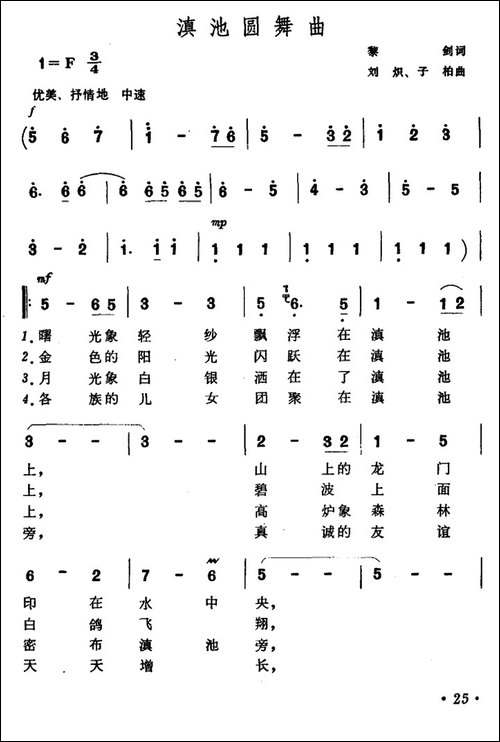 滇池圆舞曲
1=F 3/4
黎 剑词
刘 炽、子 柏曲
优美、抒情地 中速
f
( 5 6 7 | 1 - 7 6 | 5 - 3 2 | 1 2 3 |
6. 6 6 | 6 6 5 6 5 | 6 - 5 | 4 - 3 | 5 - 5 |
mp
3 - 2 | 1. 1 1 | 1 1 1 | 1 1 1 | 1 1 1 ) |
mf
5 - 6 5 | 3 - 3 | 5 6. 5 | 1 - 1 2 |
1.曙 光象 轻 纱 飘 浮 在 滇 池
2.金 色的 阳 光 闪 跃 在 滇 池
3.月 光象 白 银 洒 在 了 滇 池
4.各 族的 儿 女 团 聚 在 滇 池
3 - - | 3 - - | 2 - 3 2 | 1 - 5 |
上, 山 上的 龙 门
上, 碧 波 上 面
上, 高 炉象 森 林
旁, 真 诚的 友 谊
6 - 2 | 7 - 6 | 5 - - | 5 - - |
印 在 水 中 央,
白 鸽 飞 翔,
密 布 滇 池 旁,
天 天 增 长,
· 25 ·